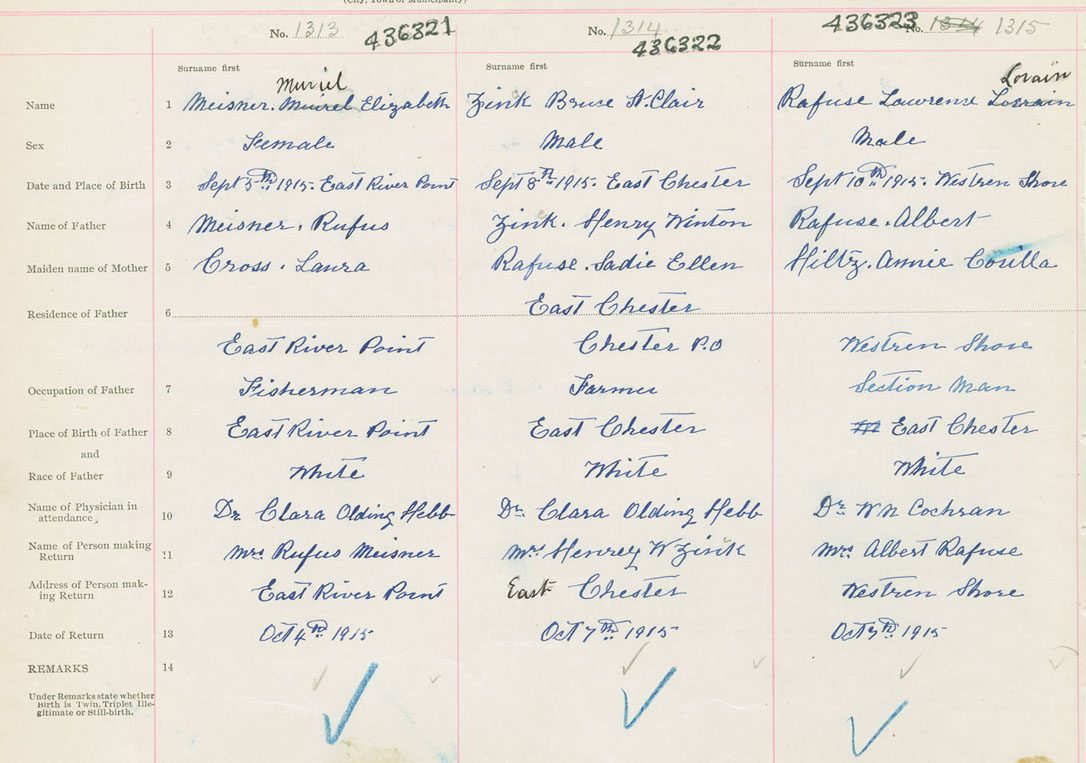 (City, Town or Municipality)
No. 1313 436321 No. 1314 436322 436323 No. 1314 1315
Surname first Surname first Surname first
Muriel Lorain
Name 1 Meisner. Muirel Elizabeth Zink Bruce St. Clair Rafuse Lawrense Losrain
Sex 2 Female Male Male
Date and Place of Birth 3 Sept 5th 1915. East River Point Sept 8th 1915. East Chester Sept 10th 1915. Westren Shore
Name of Father 4 Meisner. Rufus Zink. Henry Winton Rafuse. Albert
Maiden name of Mother 5 Cross. Laura Rafuse. Sadie Ellen Hiltz. Annie Corilla
East Chester
Residence of Father 6
East River Point Chester P.O Westren Shore
Occupation of Father 7 Fisherman Farmer Section Man
Place of Birth of Father 8 East River Point East Chester East Chester
and
Race of Father 9 White White White
Name of Physician in
attendance, 10 Dr. Clara Olding Hebb Dr. Clara Olding Hebb Dr. W N Cochran
Name of Person making
Return 11 Mrs. Rufus Meisner Mrs. Henrey W Zink Mrs. Albert Rafuse
Address of Person mak-
ing Return 12 East River Point East Chester Westren Shore
Date of Return 13 Oct 4th 1915 Oct 7th 1915 Oct 1915
REMARKS 14
Under Remarks state whether
Birth is Twin, Triplet Ille-
gitimate or Still-birth.